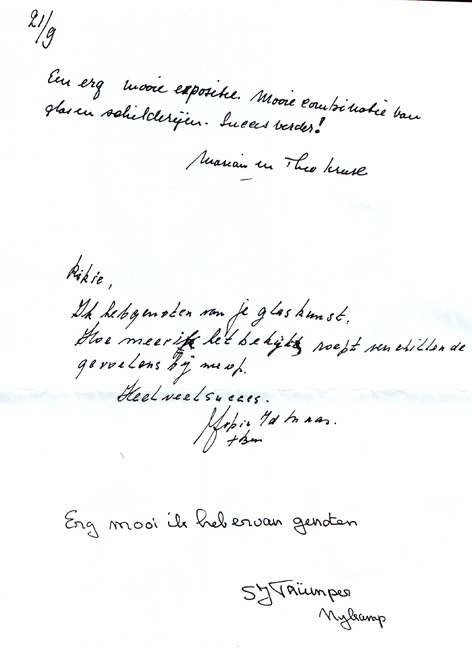 21/9
Een erg mooie expositie. Mooie combinatie van
glas en schilderijen. Succes verder!
Marian en Theo Kruse
Rikie,
Ik heb genoten van je glaskunst.
Hoe meer ik het bekijk roept verschillende
gevoelens bij me op.
Heel veel succes.
Erg mooi ik heb ervan genoten
SJ Trümper
Nykamp